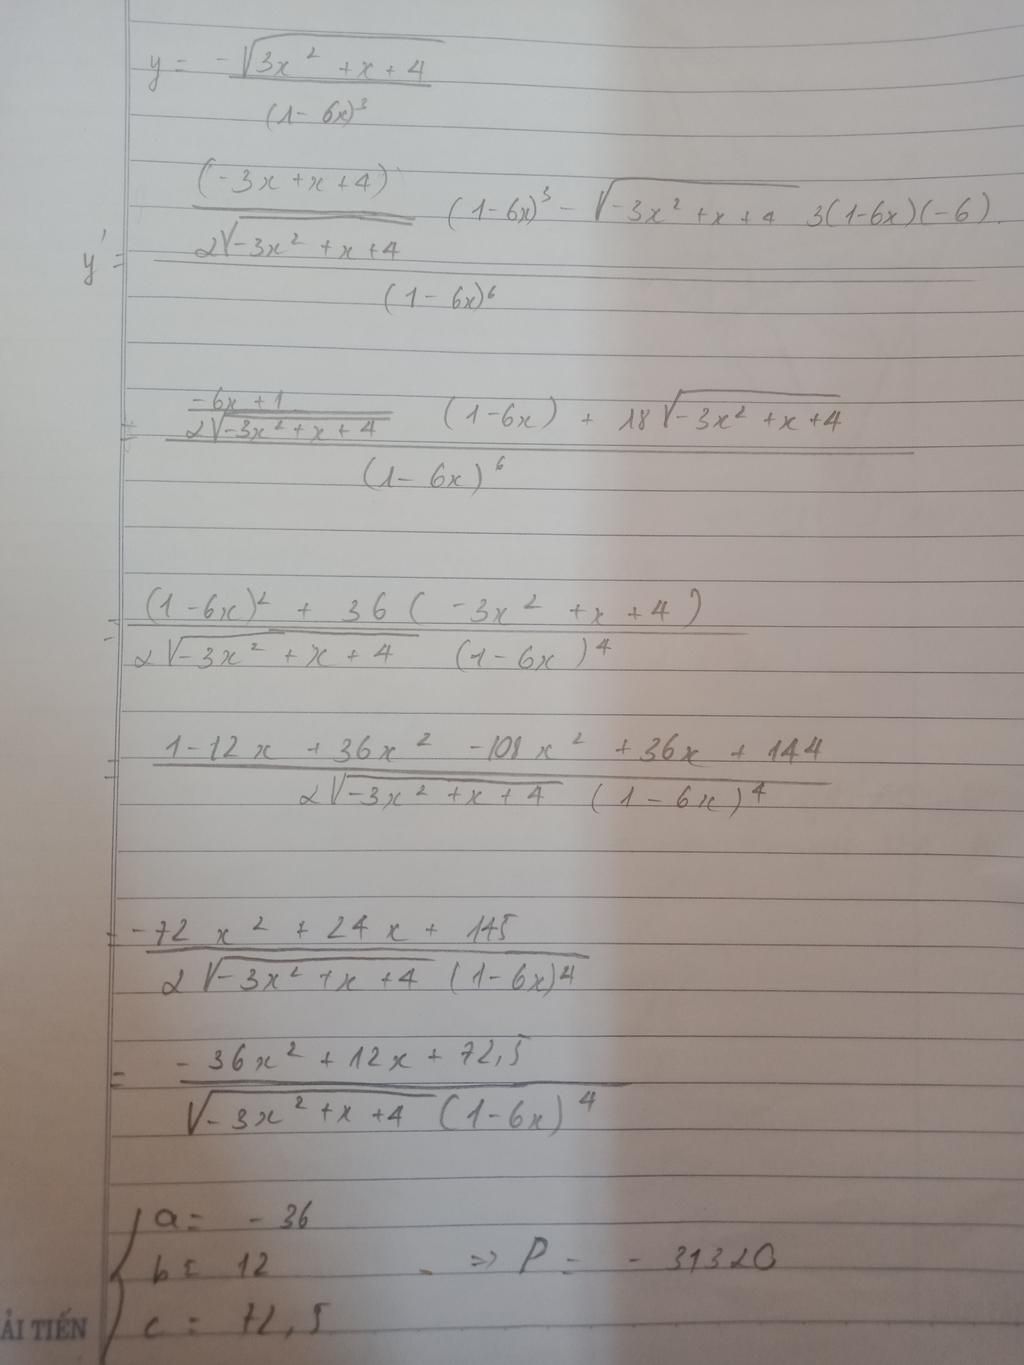 y = -√3x² + x + 4 / (1 - 6x)³
y' = (-3x + x + 4)' / 2√-3x² + x + 4 (1 - 6x)³ - √-3x² + x + 4 3(1-6x)(-6) / (1 - 6x)⁶
= -6x + 1 / 2√-3x² + x + 4 (1 - 6x) + 18√-3x² + x + 4 / (1 - 6x)⁶
= (1 - 6x)² + 36(-3x² + x + 4) / 2√-3x² + x + 4 (1 - 6x)⁴
= 1 - 12x + 36x² - 108x² + 36x + 144 / 2√-3x² + x + 4 (1 - 6x)⁴
= -72x² + 24x + 145 / 2√-3x² + x + 4 (1 - 6x)⁴
= -36x² + 12x + 72,5 / √-3x² + x + 4 (1 - 6x)⁴
a = -36
b = 12 => P = -31320
c = 72,5
ẢI TIẾN